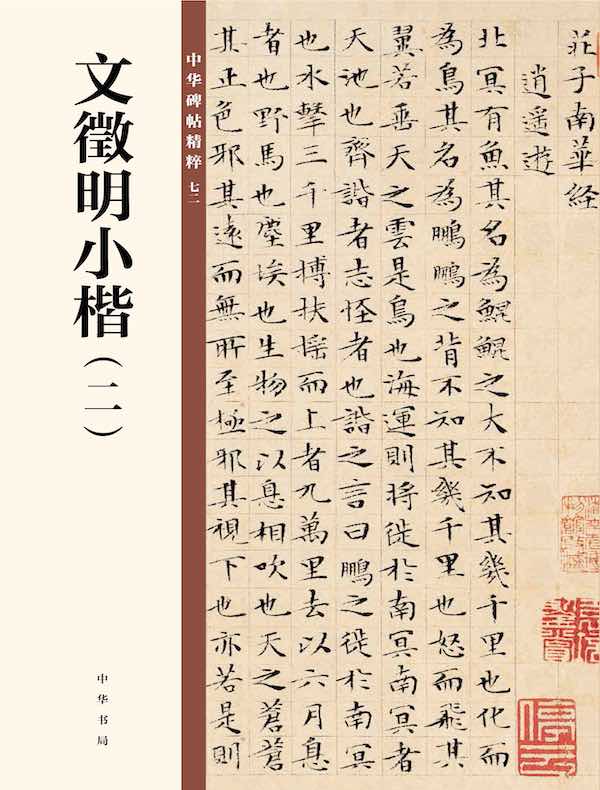 文徵明小楷(二)
中华碑帖精粹 七二
中华书局
莊子南華经
逍遥遊
北冥有魚其名為鯤鯤之大不知其幾千里也化而
為鳥其名為鵬鵬之背不知其幾千里也怒而飛其
翼若垂天之雲是鳥也海運則将徙於南冥南冥者
天池也齊諧者志怪者也諧之言曰鵬之徙於南冥
也水擊三千里摶扶揺而上者九萬里去以六月息
者也野馬也塵埃也生物之以息相吹也天之蒼蒼
其正色邪其遠而無所至極邪其視下也亦若是則